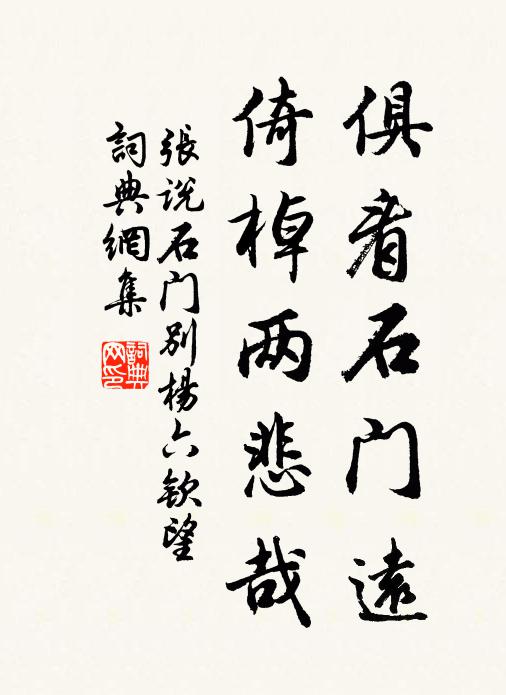 俱看石门遠
倚棹两悲哉
張说石门别楊六欽望
詞典網集
詞典网印